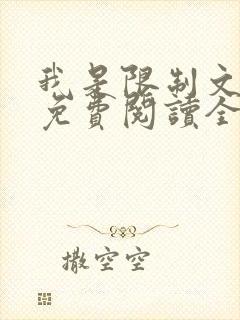 我是限制文
免費閱讀全
撒空空